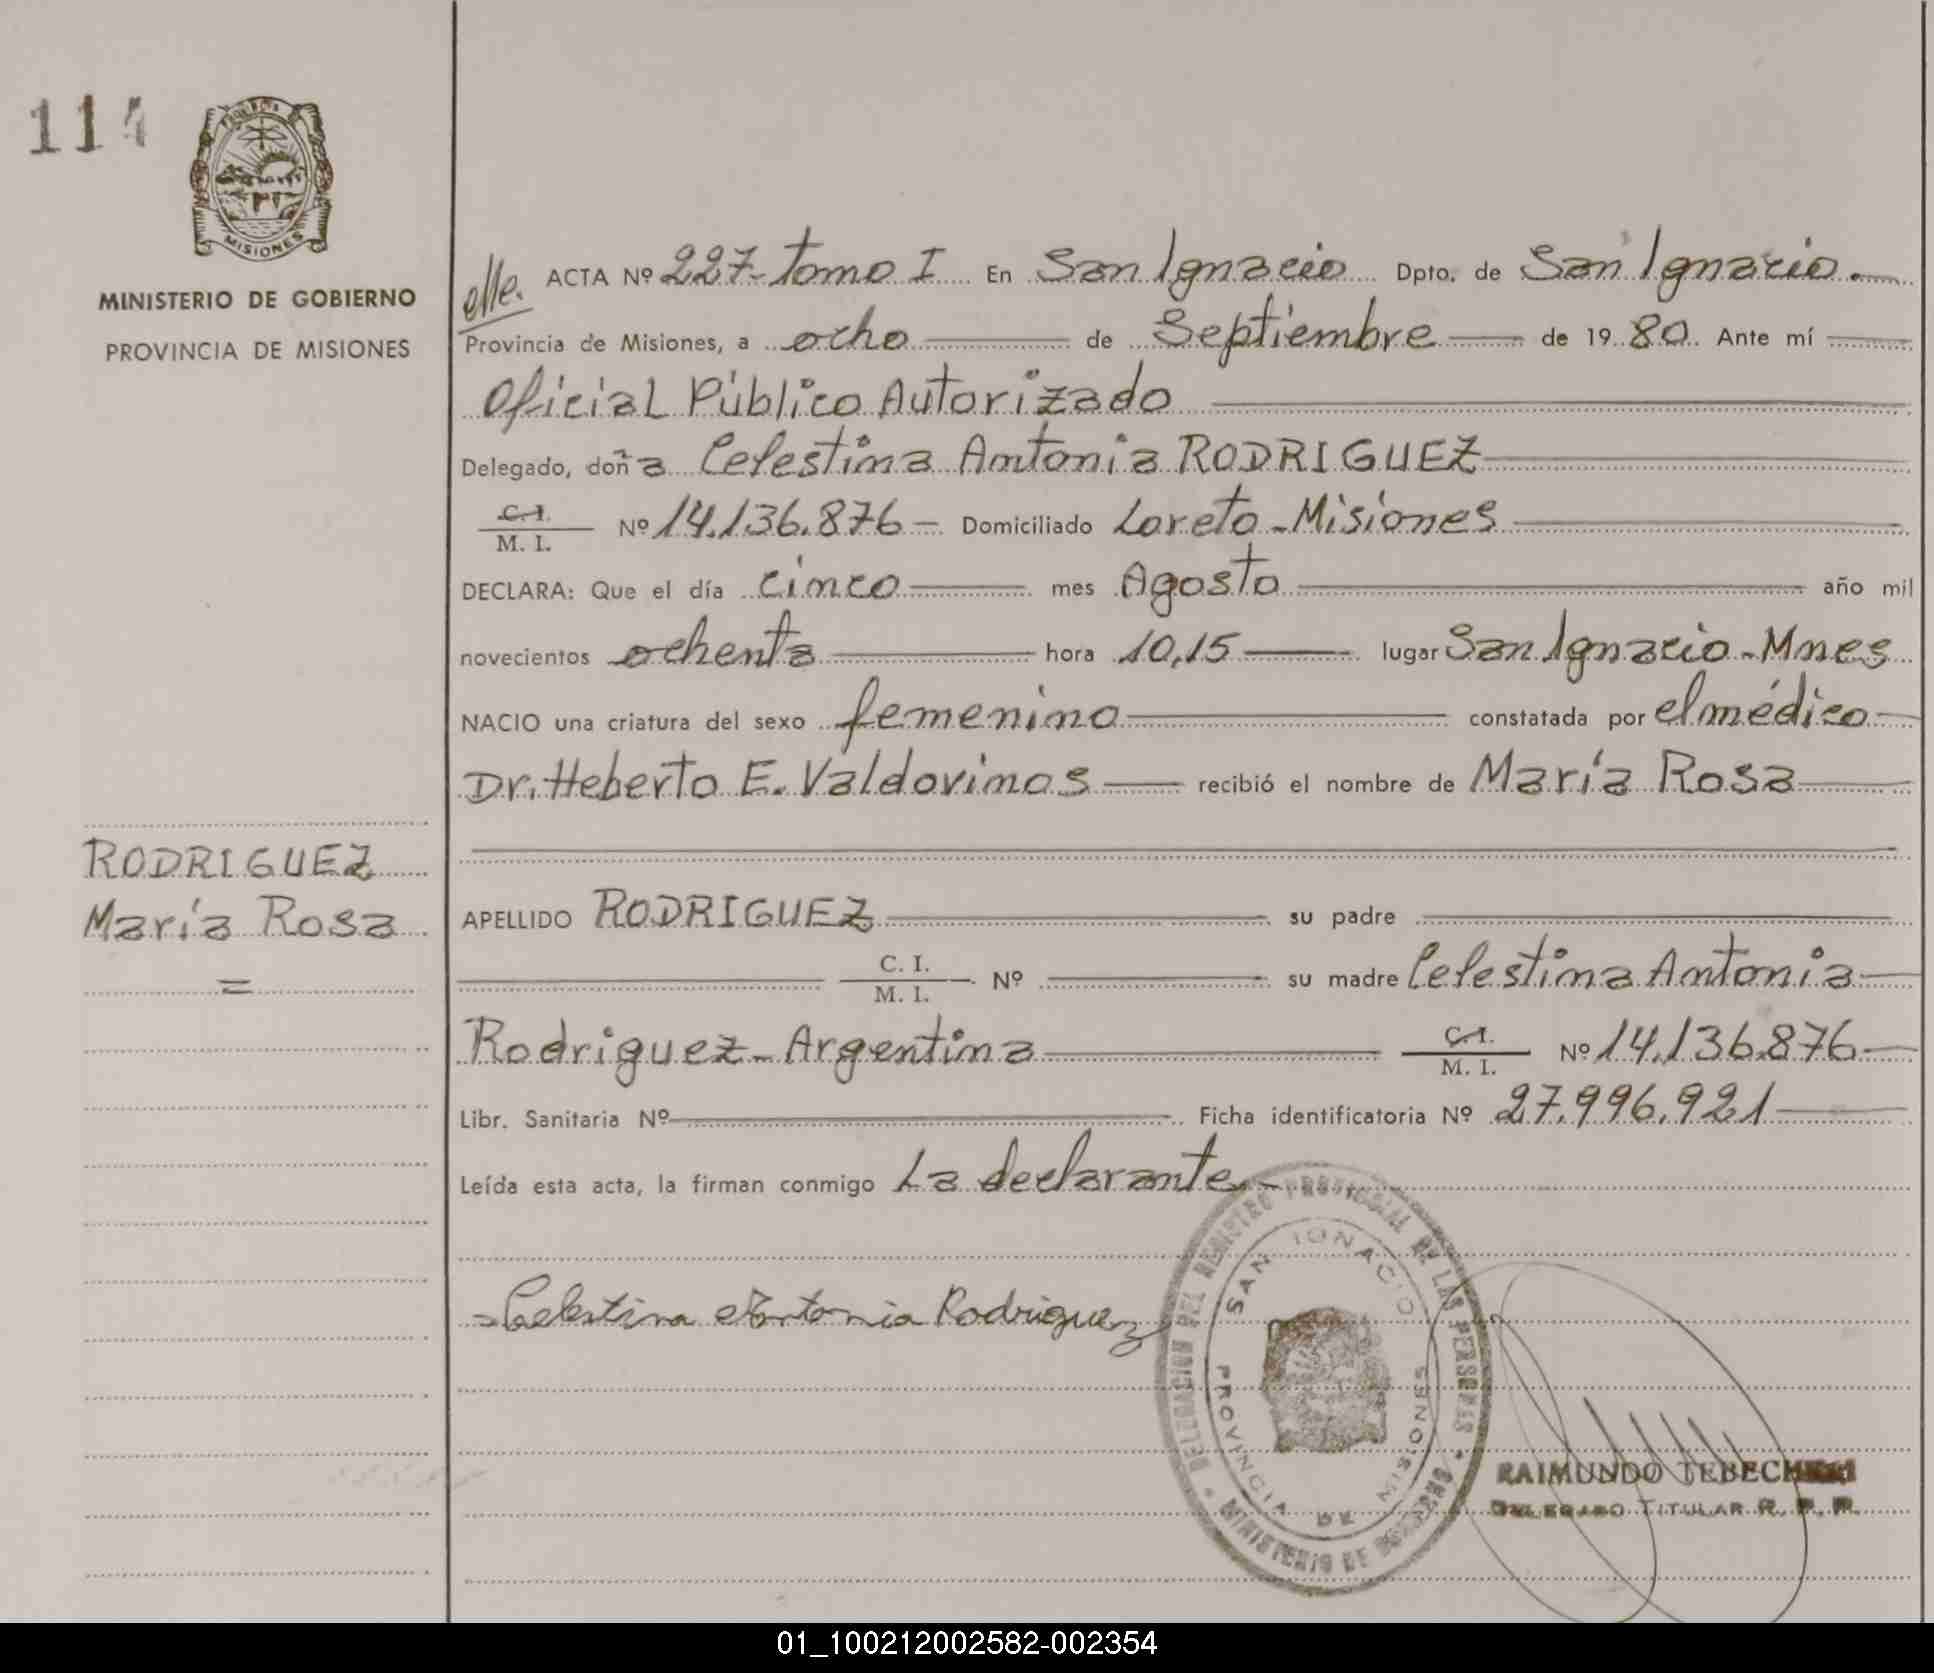 114
MISIONES
MINISTERIO DE GOBIERNO
PROVINCIA DE MISIONES
RODRIGUEZ
María Rosa
=
elle.
ACTA Nº 227-Tomo I En San Ignacio Dpto. de San Ignacio.
Provincia de Misiones, a ocho de Septiembre de 1980. Ante mí
Oficial Público Autorizado
Delegado, doña Celestina Antonia RODRIGUEZ
C. I.
M. I. Nº 14.136.876 - Domiciliado Loreto - Misiones
DECLARA: Que el día cinco mes Agosto año mil
novecientos ochenta hora 10,15 lugar San Ignacio - Mnes
NACIO una criatura del sexo femenino constatada por el médico
Dr. Heberto E. Valdovinos recibió el nombre de María Rosa
APELLIDO RODRIGUEZ su padre
C. I.
M. I. Nº su madre Celestina Antonia
Rodriguez - Argentina C. I.
M. I. Nº 14.136.876
Libr. Sanitaria Nº Ficha identificatoria Nº 27.996.921
Leída esta acta, la firman conmigo La declarante.-
Celestina Antonia Rodriguez
DELEGACION DEL REGISTRO PROVINCIAL DE LAS PERSONAS
MINISTERIO DE GOBIERNO
SAN IGNACIO
PROVINCIA DE MISIONES
RAIMUNDO
DELEGADO TITULAR R. P. P.
01_100212002582-002354